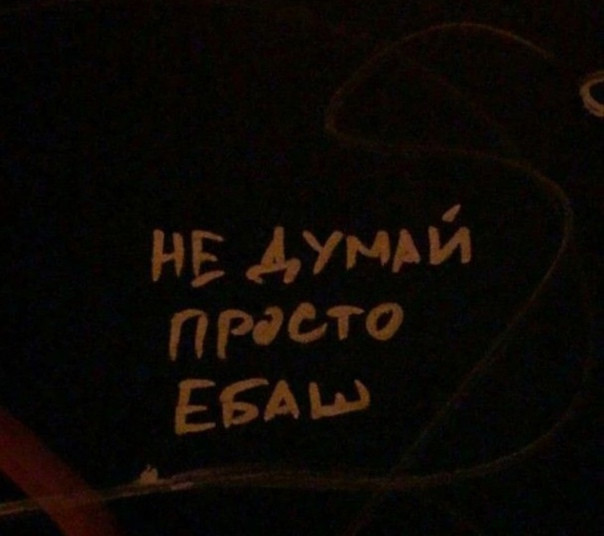 НЕ ДУМАЙ
ПРОСТО
ЕБАШ